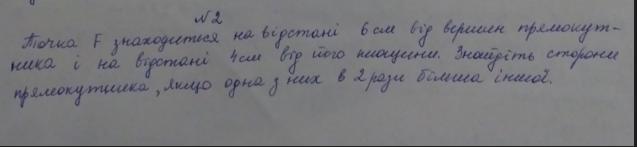 №2
Точка F знаходиться на відстані 6 см від вершин прямокут-
ника і на відстані 4 см від його площини. Знайдіть сторони
прямокутника, якщо одна з них в 2 рази більша іншої.